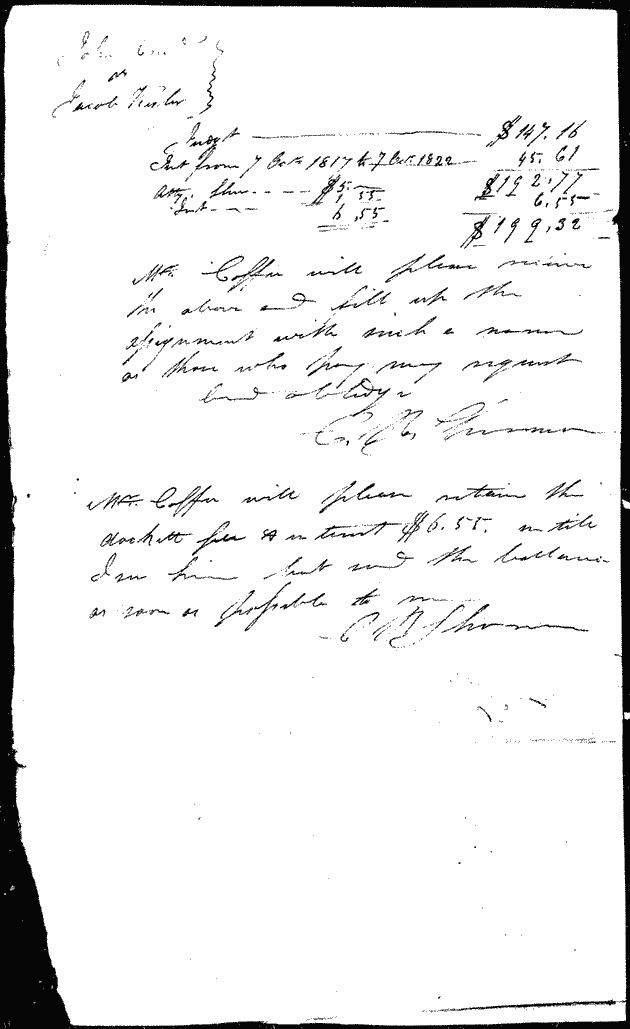 John
vs
Jacob
Judgt $147.16
Int from 7 Octr 1817 to 7 Oct. 1822 45.61
$192.77
Atty. $5.— 6.55
Int 1.55 $199.32
6.55
Mr. Coffee will please receive
the above and fill up the
assignment with such a name
as those who pay may request
and oblidge
Mr. Coffee will please retain the
dockett fee & interest $6.55. untill
I see him but send the ballance
as soon as possable to me